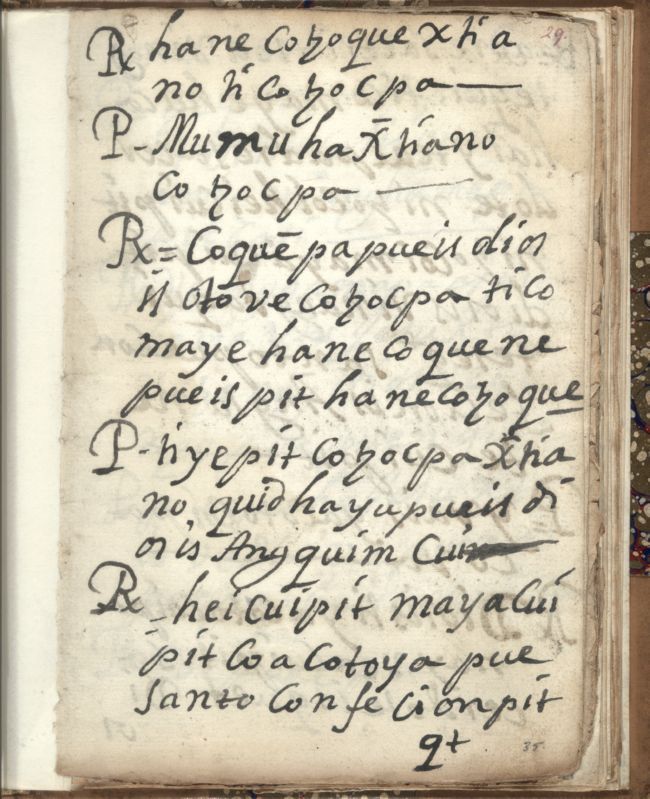 29.
R⁄ hane Coꜩoque xp̄tia
no ti Coꜩocpa —
P- Mumu ha x̄tiano
Coꜩocpa —
R⁄ = Coquē papueis dios
is oto ve Coꜩocpa ti co
maye hane coque ne
pueis pit hane coꜩoque
P- ti ye pit Coꜩocpa x̄tia
no, quid hayu pueis di
os is Any quim
R⁄ - hei cui pit maya cui
pit Co a cotoya pue
santo Confecion pit
qt
35